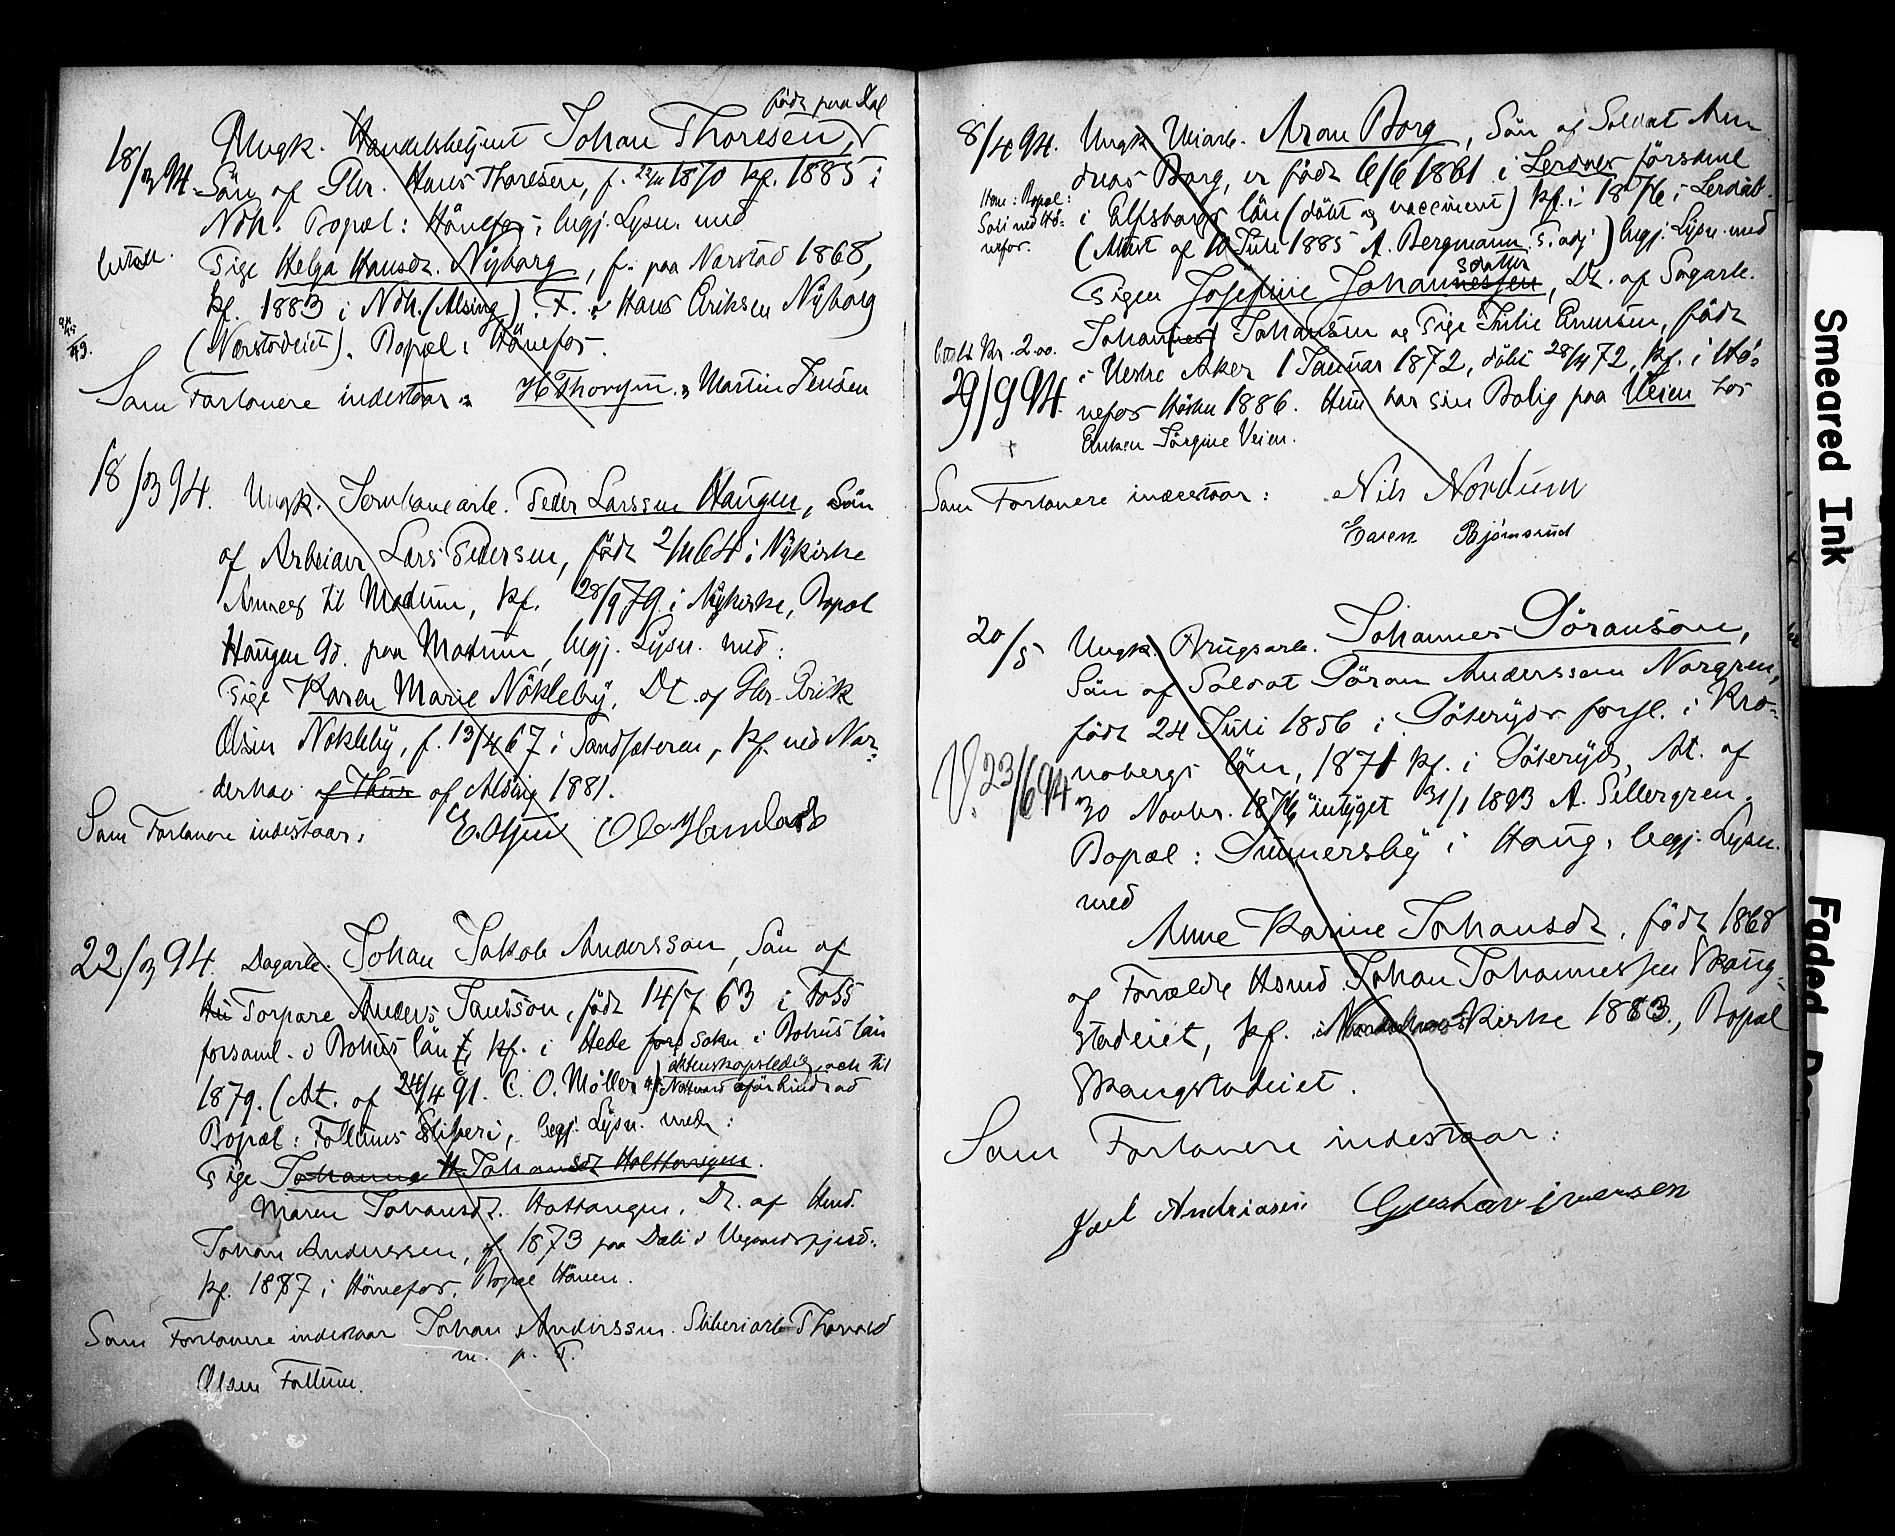 född paa Dal
18/3 94. Ungk. Handelsbetjent Johan Thoresen,
Sön af Gbr. Hans Thoresen, f. 1870 kf. 1885 i
Ndh. Bopæl: Hönefos; begj. Lysn. med
betalt. Pige Helga Hansdr. Nyborg, f. paa Narstad 1868,
kf. 1883 i Ndh. (Alsing). F. : Hans Eriksen Nyborg
(Narstadeiet). Bopæl: Hönefos.
Som Forlovere indestaar: H Thorgm. Martin Jensen
18/3 94. Ungk. Jernbanearb. Peder Larssen Haugen, Sön
af Arbeider Lars Pedersen, född 2/11 64 i Nykirke
Annex til Modum, kf. 28/9 79 i Nykirke, Bopæl
Haugen Gd. paa Modum, begj. Lysn. med:
Pige Karen Marie Nökleby, Dt. af Gbr. Erik
Olsen Nökleby, f. 13/4 67 i Sandsæteren, kf. ved Nor-
derhov af Thur af Alsing 1881.
Som Forlovere indestaar:
22/3 94. Dagarb. Johan Jakob Andersson, Sön af
Hu Torpare Anders Jansson, född 14/7 63 i Foss
forsaml. i Bohus län, kf. i Hede förs sokn i Bohus län
1879. (At. af 24/4 91. C. O. Möller) äktenskapsledig och til
Nattvard oförhindrad
Bopæl: Follums Sliberi, begj. Lysn. med:
Pige Johanna H. Johansdt Holthaugen.
Maren Johansdt. Hattangen, Dt. af Hmd.
Johan Anderssen, f. 1873 paa Dæli i Vegaardsfjerd.
kf. 1887 i Hönefos, Bopæl Hönen.
Som Forlovere indestaar Johan Anderssen. Sliberiarb Thorvald
m. p. P.
Olsen Follum.
8/4 94. Ungk. Aron Borg, Sön af Soldat An
dreas Borg, er född 6/6 1861 i Lerdals församl
Han: Bopæl:
i Elfsborgs län (döbt og vaccineret) kf. i 1876 i Lerdal.
(Attest af 10 Juli 1885 A. Bergmann, P. adj.) begj. Lysn. med
Pigen Josefine Johannessen sdatter, Dt. af Sagarb.
Johan(nes) Johansen og Pige Julie Evensen, född
betalt Kr. 2.00.
i Vestre Aker 1 Januar 1872, döbt 28/4 72, kf. i Hö-
29/9 94. nefos Hösten 1886. Hun har sin Bolig paa Veien hos
Enken Jörgine Veien.
Som Forlovere indestaar: Nils Nordum
Even Bjömsrud
20/5 Ungk. Brugsarb. Johannes Göranson,
Sön af Soldat Göran Anderssom Norgren,
född 24 Juli 1856 i Göteryds forsl. i Kro-
V. 23/6 94 nobergs län, 1871 kf. i Göteryds, At. af
30 Novbr. 1876 intyget 31/1 1893 A. Sellergren,
Bopæl: Gummersby i Haug, begj. Lysn.
med
Anne Karine Johansdt, född 1868
af Forældre Hsmd. Johan Johannessen Skaug-
stadeiet, kf. i Norderhovs Kirke 1883, Bopæl
Skaugstadeiet.
Som Forlovere indestaar:
Karl Andriasen Gustav Iversen
Smeared Ink